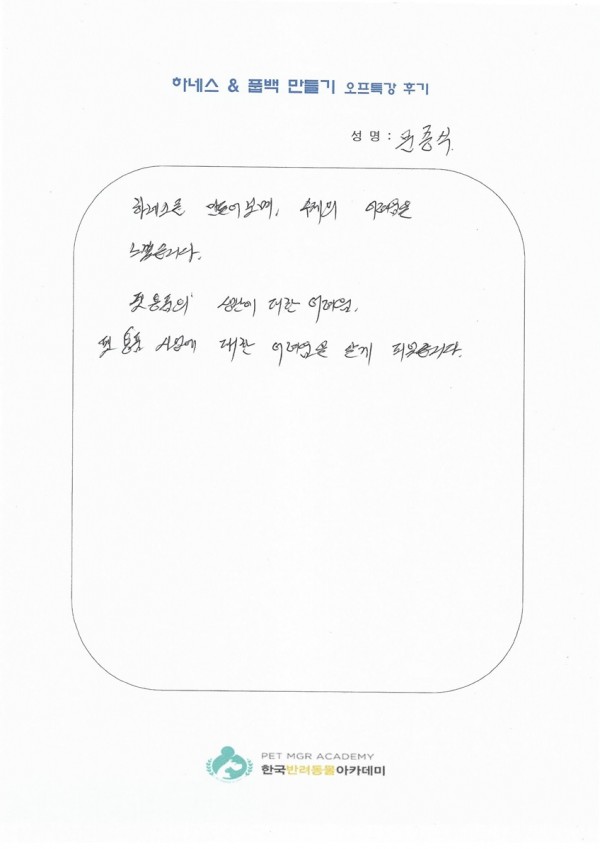 하네스 & 풉백 만들기 오프특강 후기
성 명 : 윤종식
하네스를 만들어보며, 수제의 어려움을
느꼈습니다.
펫용품의 생산에 대한 어려움,
펫 용품 사업에 대한 어려움을 알게 되었습니다.
PET MGR ACADEMY
한국반려동물아카데미